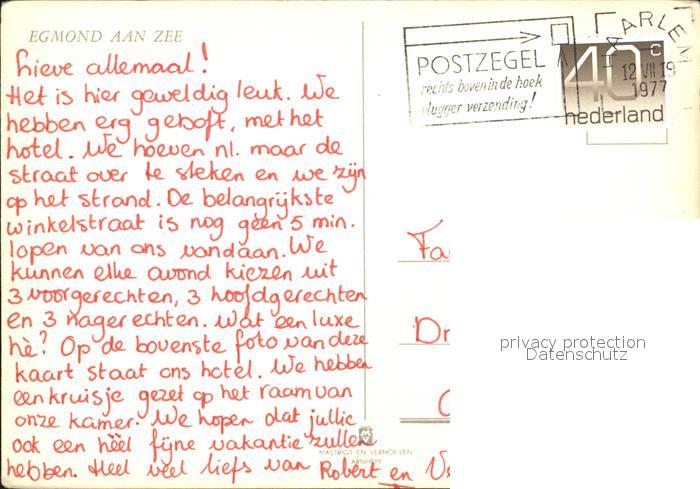 EGMOND AAN ZEE
Lieve allemaal!
Het is hier geweldig leuk. We
hebben erg geboft, met het
hotel. We hoeven nl. maar de
straat over te steken en we zijn
op het strand. De belangrijkste
winkelstraat is nog geen 5 min.
lopen van ons vandaan. We
kunnen elke avond kiezen uit
3 voorgerechten, 3 hoofdgerechten
en 3 nagerechten. Wat een luxe
hè? Op de bovenste foto van deze
kaart staat ons hotel. We hebben
een kruisje gezet op het raam van
onze kamer. We hopen dat jullie
ook een héél fijne vakantie zullen
hebben. Heel veel liefs van Robèrt en
MASTRIGT EN VERHOEVEN
ARNHEM
POSTZEGEL
rechts boven in de hoek
vlugger verzending!
HAARLEM
12 VII 19
1977
40 c
nederland
Fa
privacy protection
Datenschutz